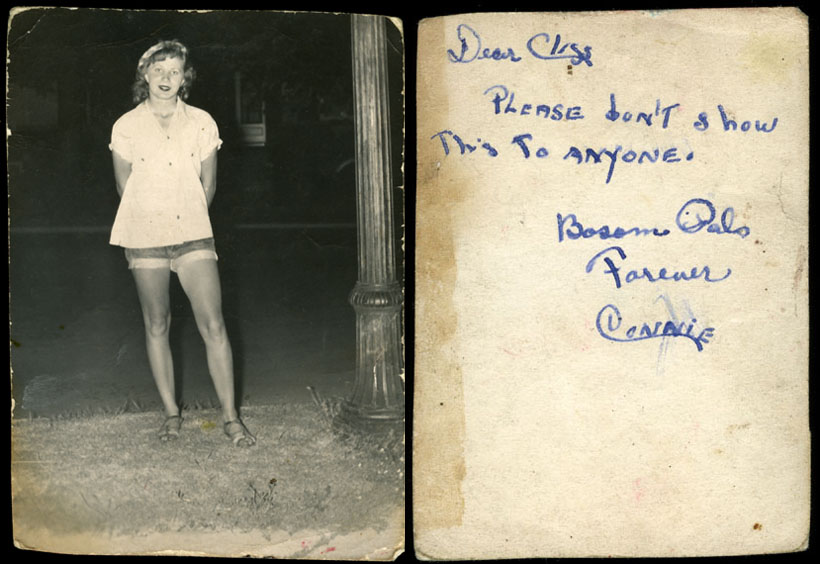 Dear Cliss
PLEASE don't show
This To ANYONE.
Bosom Pals
Forever
Connie